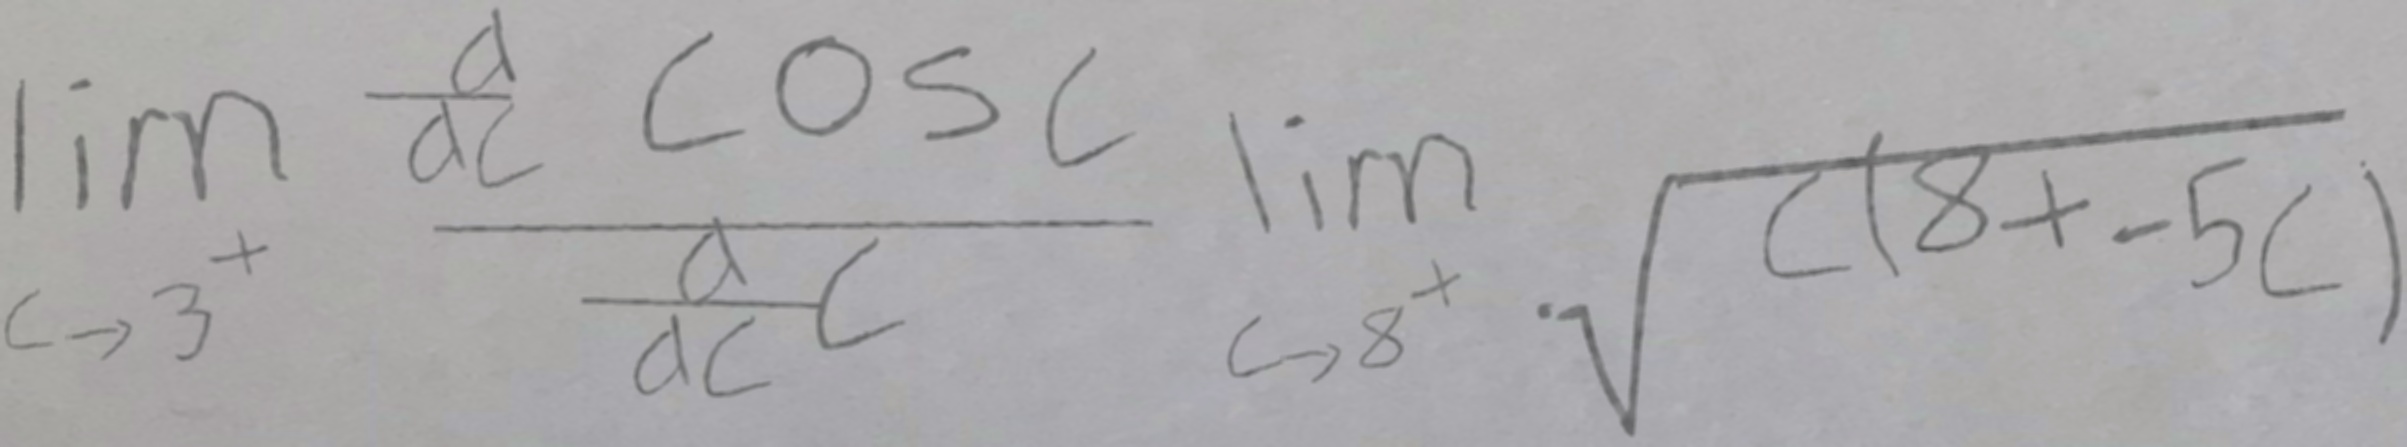 \lim_{c \to 3^+} \frac{\frac{d}{dc} \cos c}{\frac{d}{dc} c} \lim_{c \to 8^+} \cdot \sqrt{c(8+-5c)}